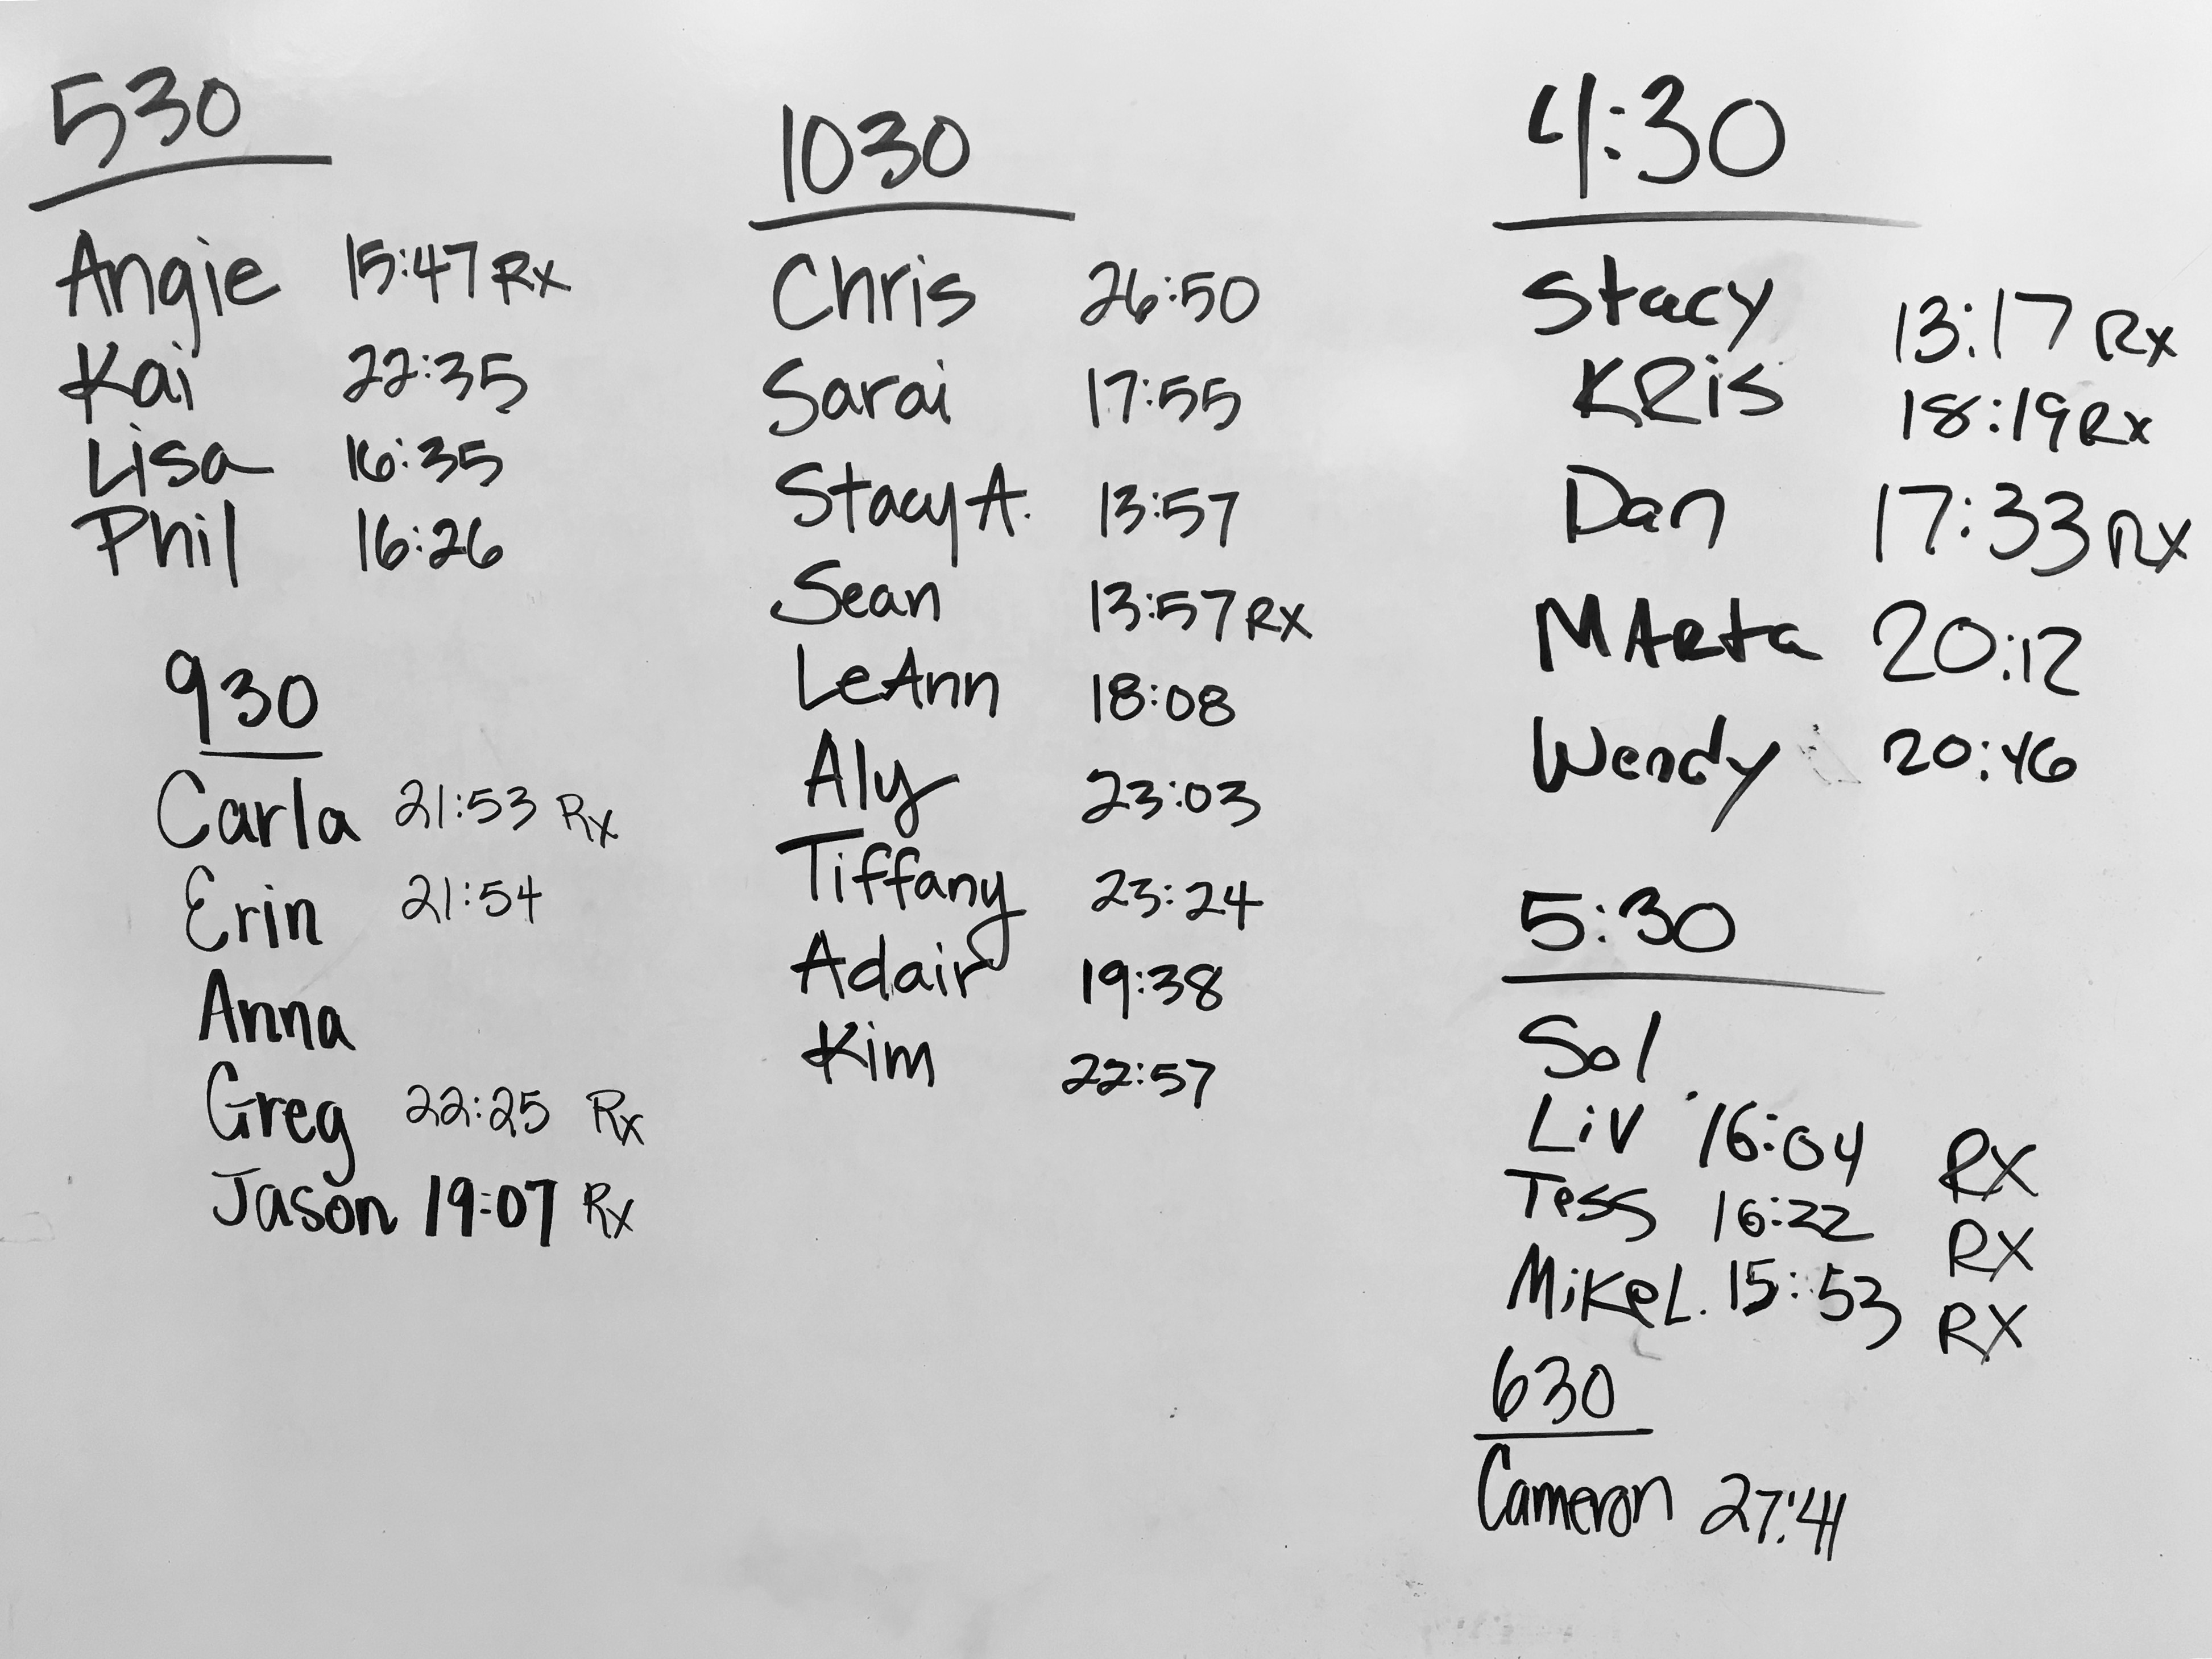 530
Angie 15:47 Rx
Kai 22:35
Lisa 16:35
Phil 16:26
930
Carla 21:53 Rx
Erin 21:54
Anna
Greg 22:25 Rx
Jason 19:07 Rx
1030
Chris 26:50
Sarai 17:55
Stacy A. 13:57
Sean 13:57 RX
LeAnn 18:08
Aly 23:03
Tiffany 23:24
Adair 19:38
Kim 22:57
4:30
Stacy 13:17 Rx
KRis 18:19 Rx
Dan 17:33 RX
MARta 20:12
Wendy 20:46
5:30
Sol
Liv 16:04 RX
Tess 16:22 RX
Mike L. 15:53 RX
630
Cameron 27:41